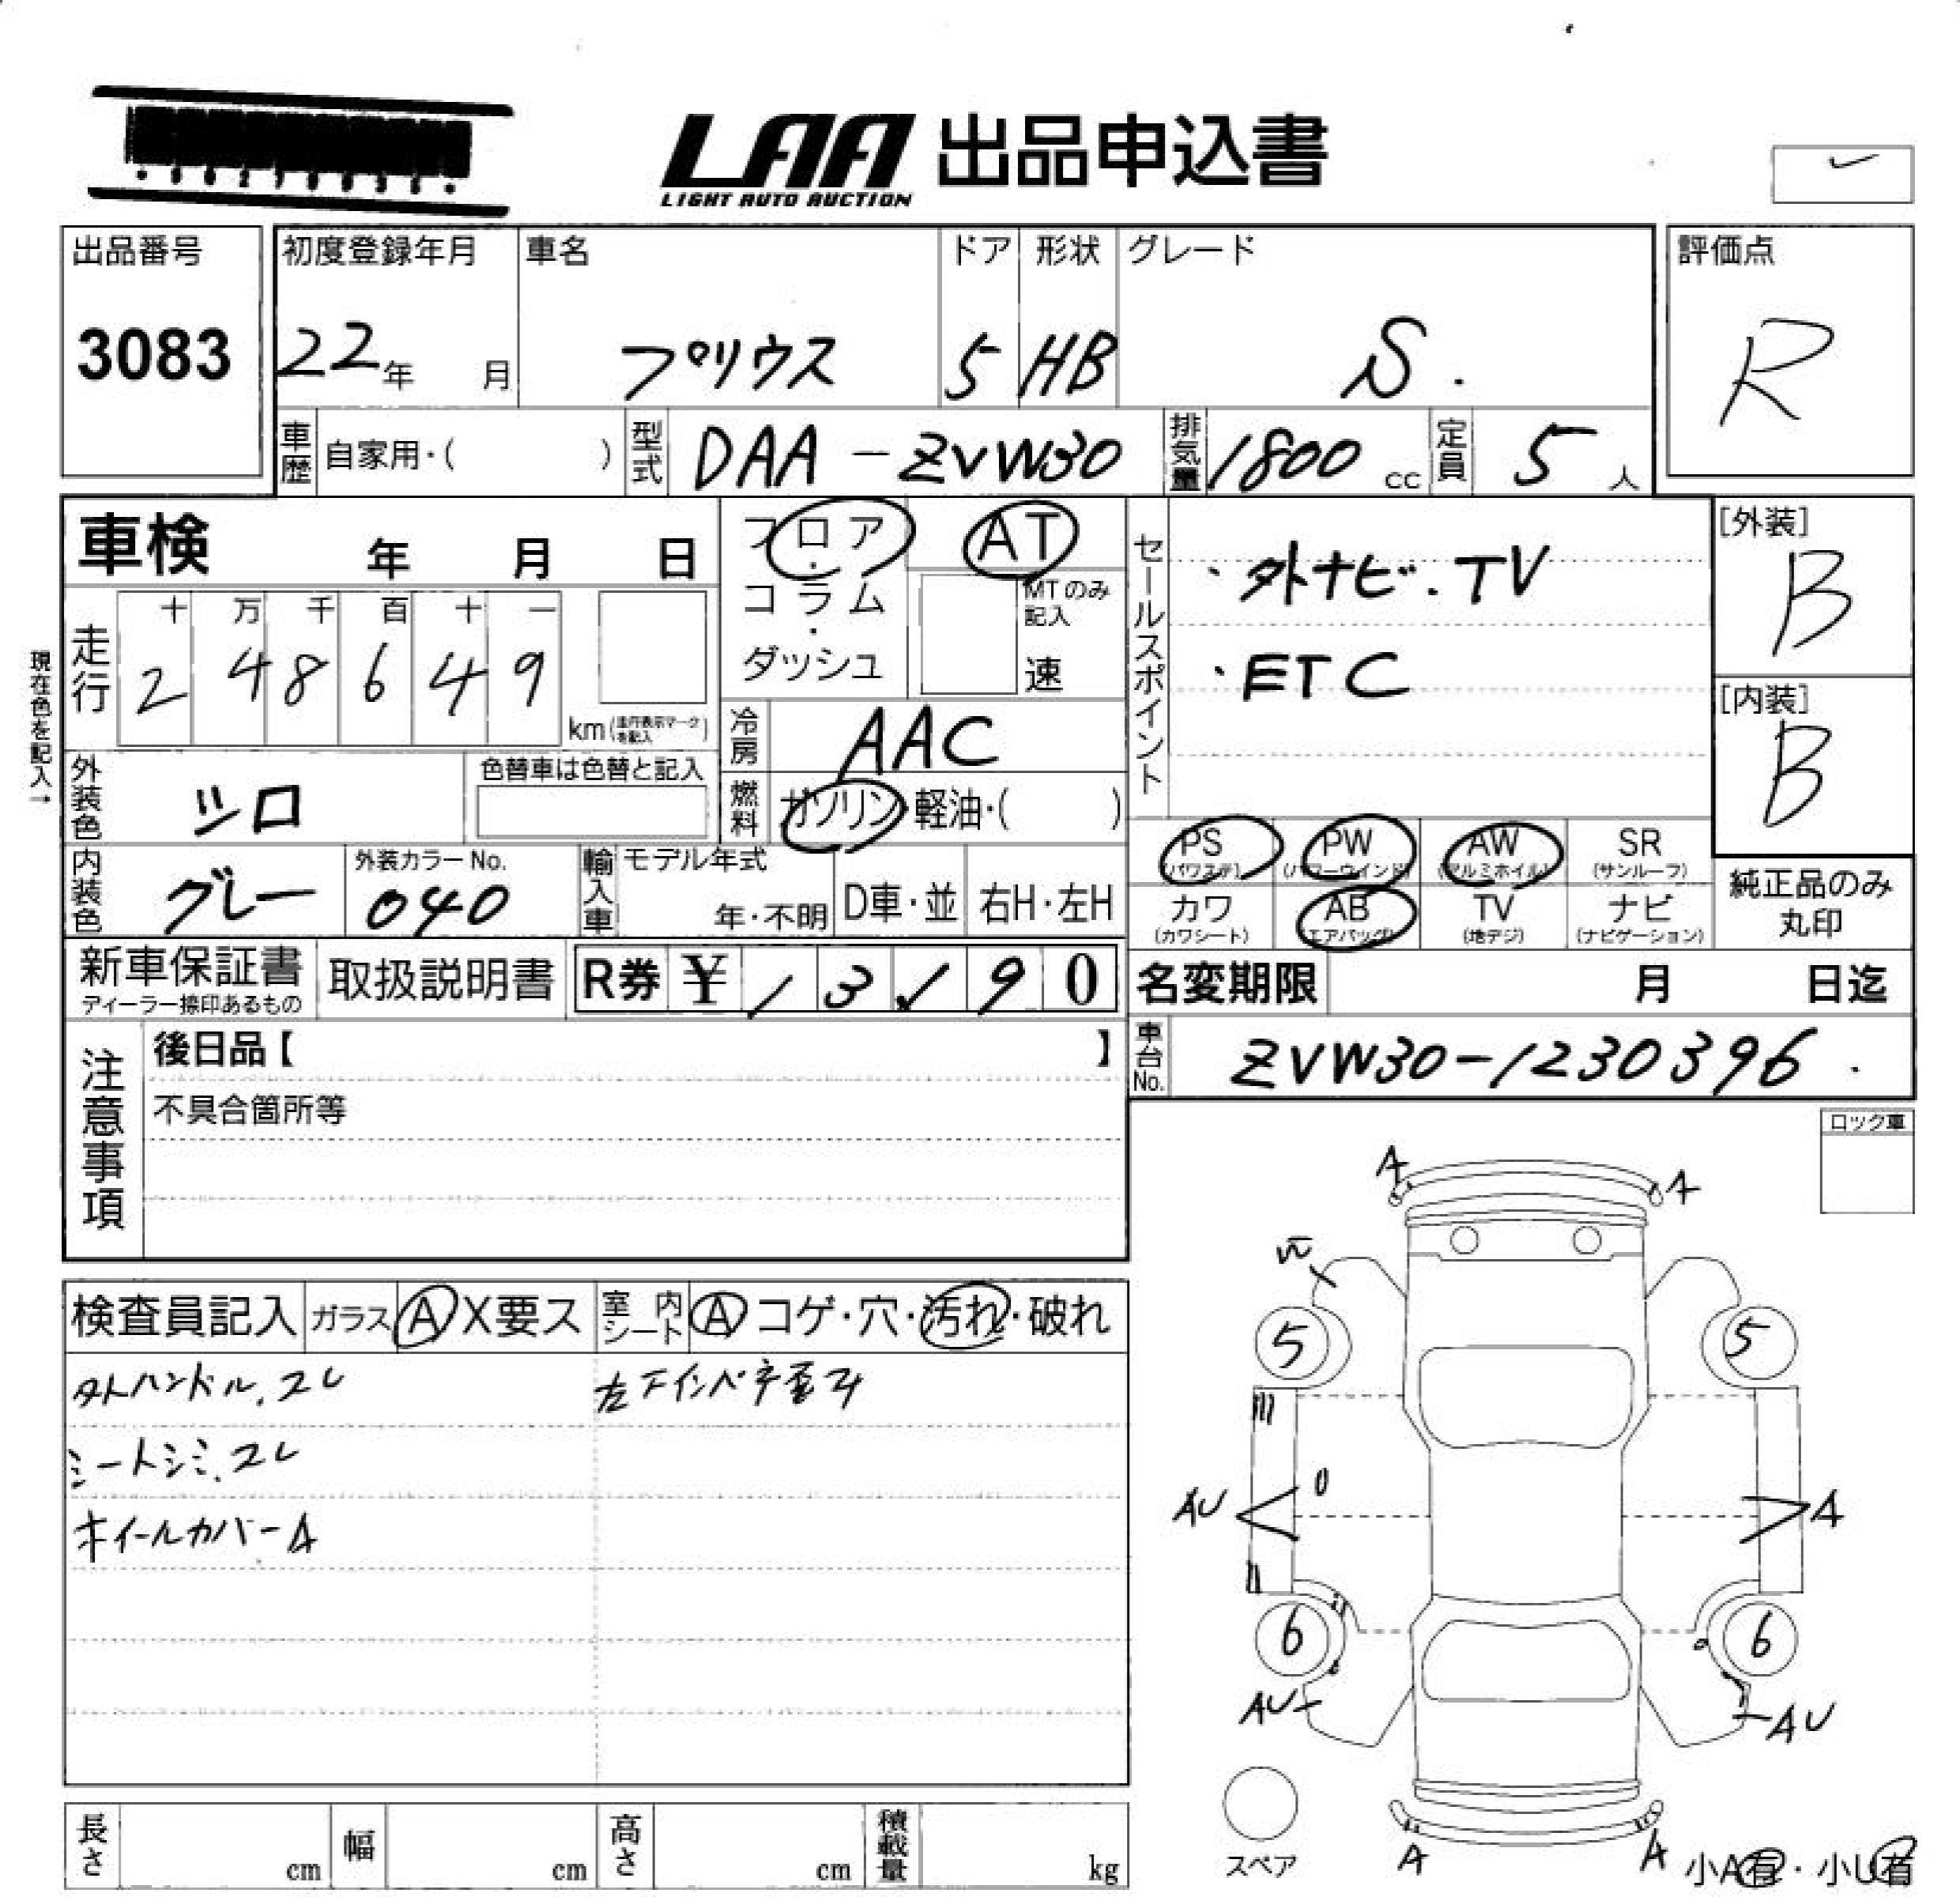 LAA 出品申込書
LIGHT AUTO AUCTION
出品番号
3083
初度登録年月
22年 月
車名
プリウス
ドア
5
形状
HB
グレード
S.
評価点
R
車歴 自家用・( )
型式 DAA-ZVW30
排気量 1800 cc
定員 5 人
車検 年 月 日
フロア・コラム・ダッシュ
AT
MTのみ記入
速
セールスポイント
・外ナビ.TV
・ETC
[外装]
B
[内装]
B
現在色を記入→
走行
十 万 千 百 十 一
2 4 8 6 4 9
km(走行表示マークを記入)
冷房 AAC
外装色 シロ
色替車は色替と記入
燃料 ガソリン・軽油・( )
内装色 グレー
外装カラーNo.
040
輸入車
モデル年式
年・不明
D車・並
右H・左H
PS (パワステ)
PW (パワーウインド)
AW (アルミホイル)
SR (サンルーフ)
カワ (カワシート)
AB (エアバッグ)
TV (地デジ)
ナビ (ナビゲーション)
純正品のみ
丸印
新車保証書
ディーラー捺印あるもの
取扱説明書
R券 ¥ / 3 / 9 0
名変期限 月 日迄
注意事項
後日品【 】
不具合箇所等
車台No. ZVW30-1230396.
ロック車
検査員記入
ガラス A X要ス
室内シート A コゲ・穴・汚れ・破れ
外ハンドル.スレ
シートシミ.スレ
ホイールカバーA
A
A
5
5
AU
A
6
6
AU
AU
A
A
スペア
小A有・小U有
長さ cm
幅 cm
高さ cm
積載量 kg